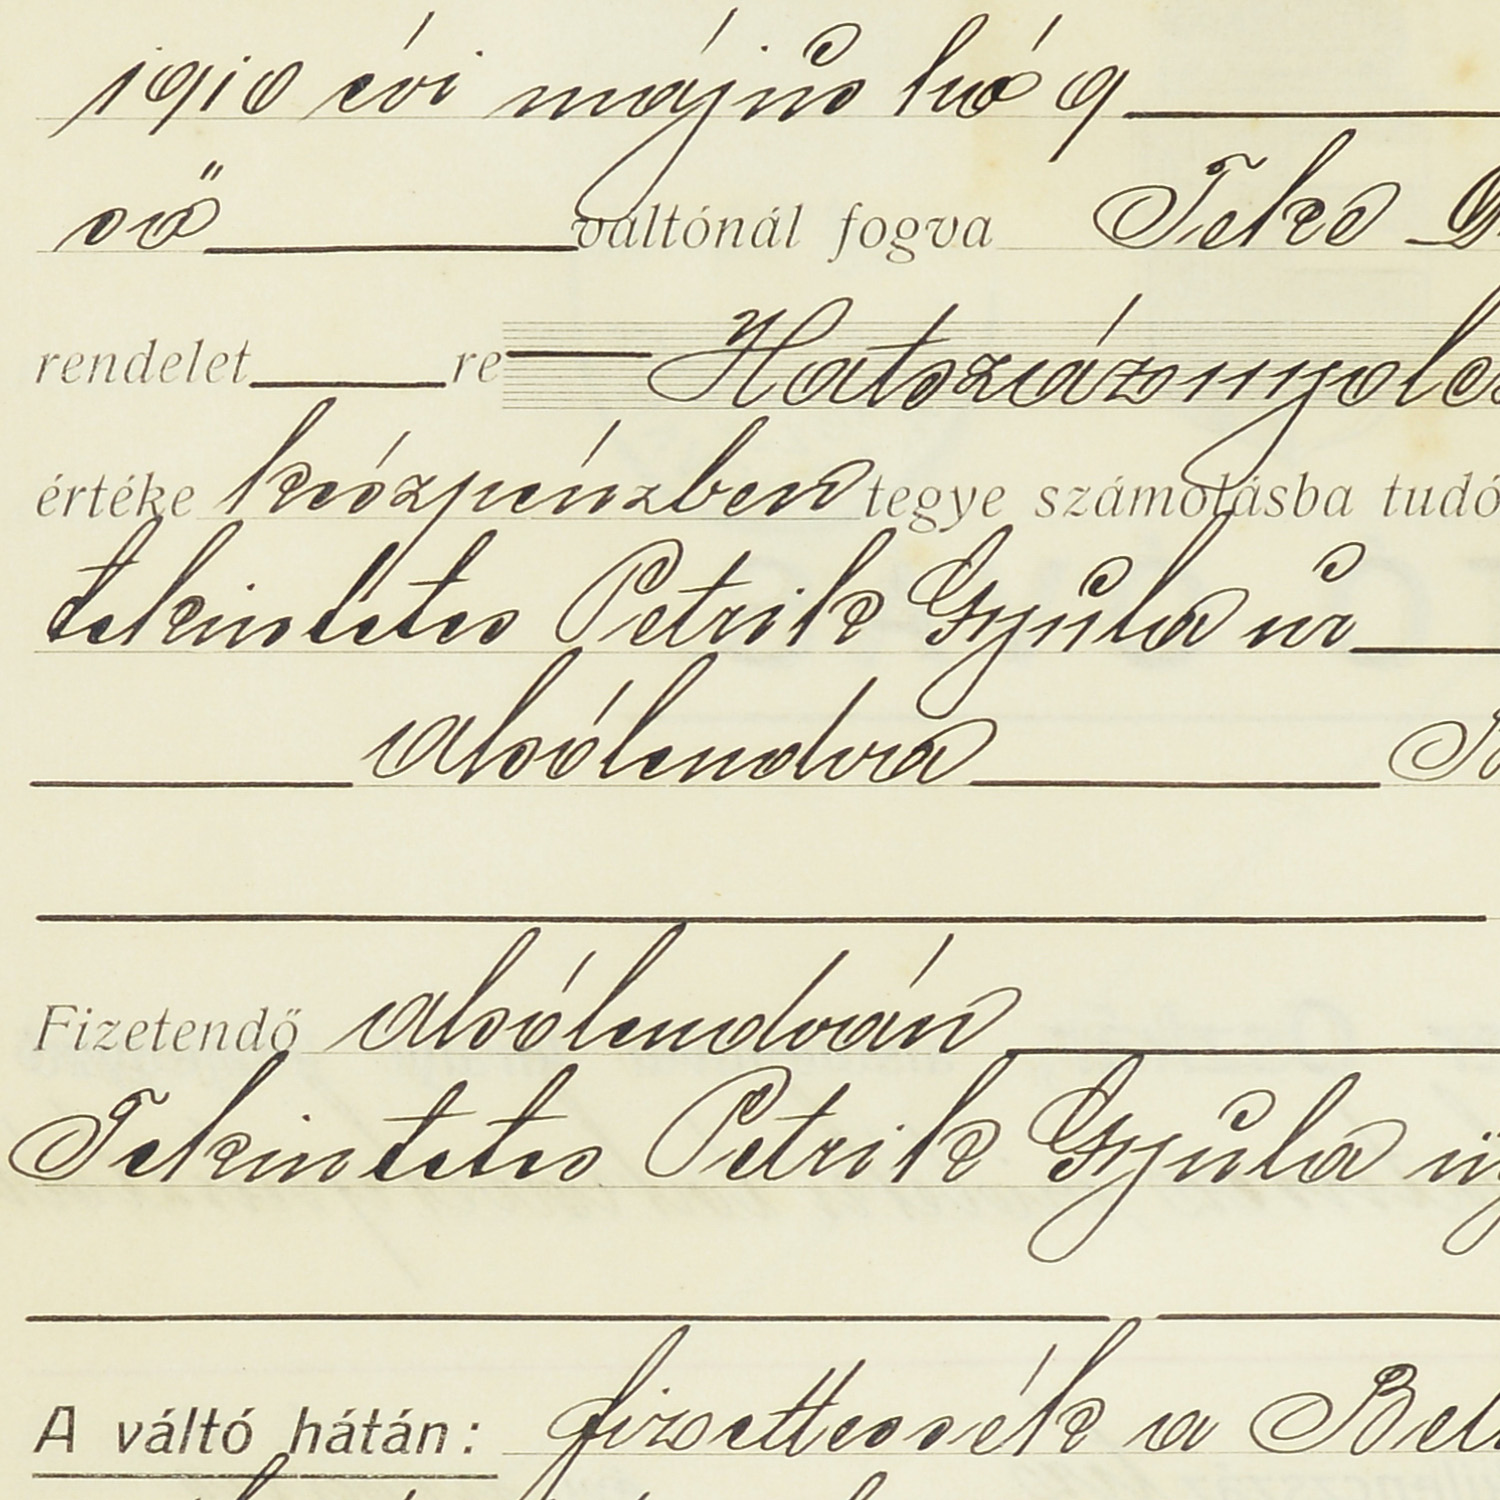 1910 évi május hó 9
ső váltónál fogva Teke
rendelet re Hatszáznyolc
értéke készpénzben tegye számolásba tudó
tekintetes Petrik Gyula úr
alsólendva
Fizetendő alsólendván
Tekintetes Petrik Gyula üg
A váltó hátán: fizettessék a Bel